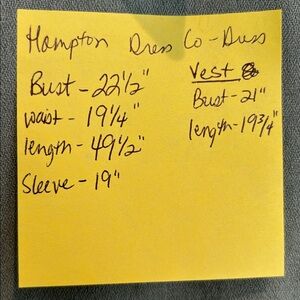 Hampton Dress Co - Dress
Bust - 22 1/2"
waist - 19 1/4"
length - 49 1/2"
Sleeve - 19"
Vest
Bust - 21"
length - 19 3/4"